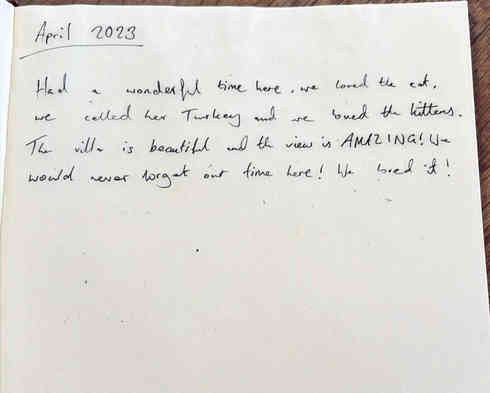 April 2023
Had a wonderful time here. we loved the cat.
we called her Turkey and we loved the kittens.
The villa is beautiful and the view is AMAZING! We
would never forget our time here! We loved it!